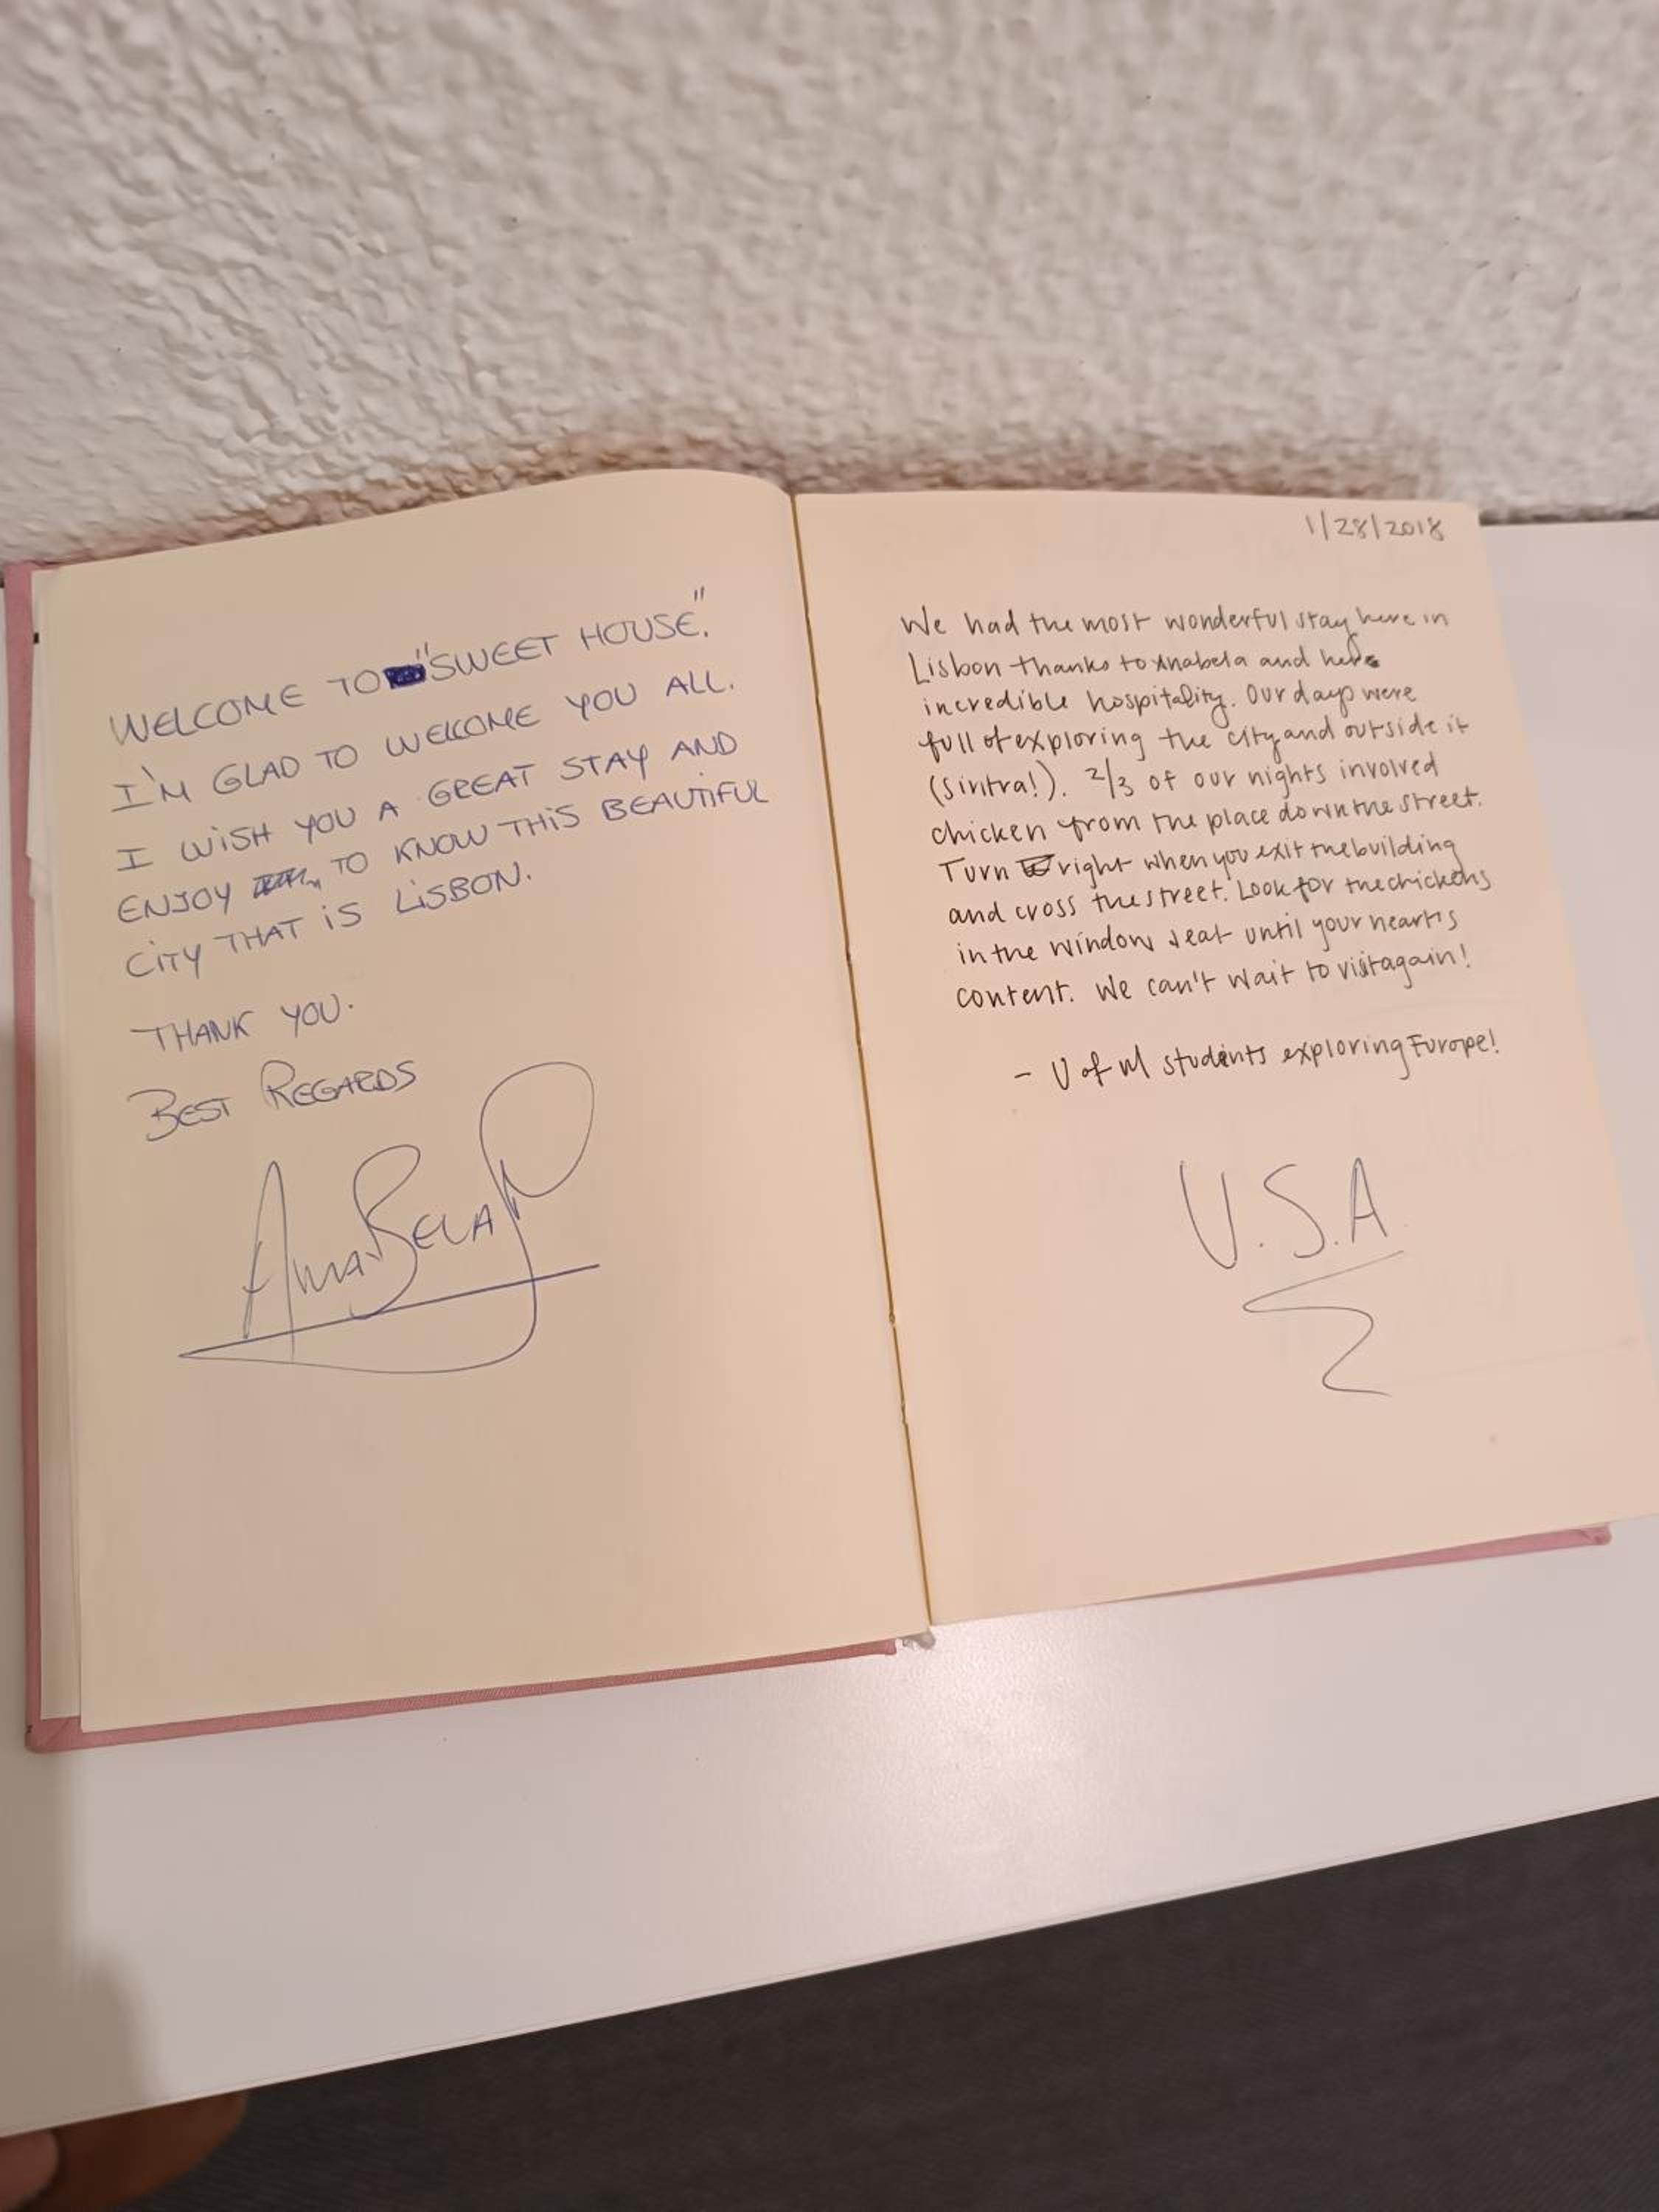 WELCOME TO "SWEET HOUSE".
I'M GLAD TO WELCOME YOU ALL.
I WISH YOU A GREAT STAY AND
ENJOY TO KNOW THIS BEAUTIFUL
CITY THAT IS LISBON.
THANK YOU.
BEST REGARDS
AnaBELA
1/28/2018
We had the most wonderful stay here in
Lisbon thanks to Anabela and her
incredible hospitality. Our days were
full of exploring the city and outside it
(Sintra!). 2/3 of our nights involved
chicken from the place down the street.
Turn right when you exit the building
and cross the street. Look for the chickens
in the window & eat until your heart's
content. We can't wait to visit again!
- U of M students exploring Europe!
U.S.A